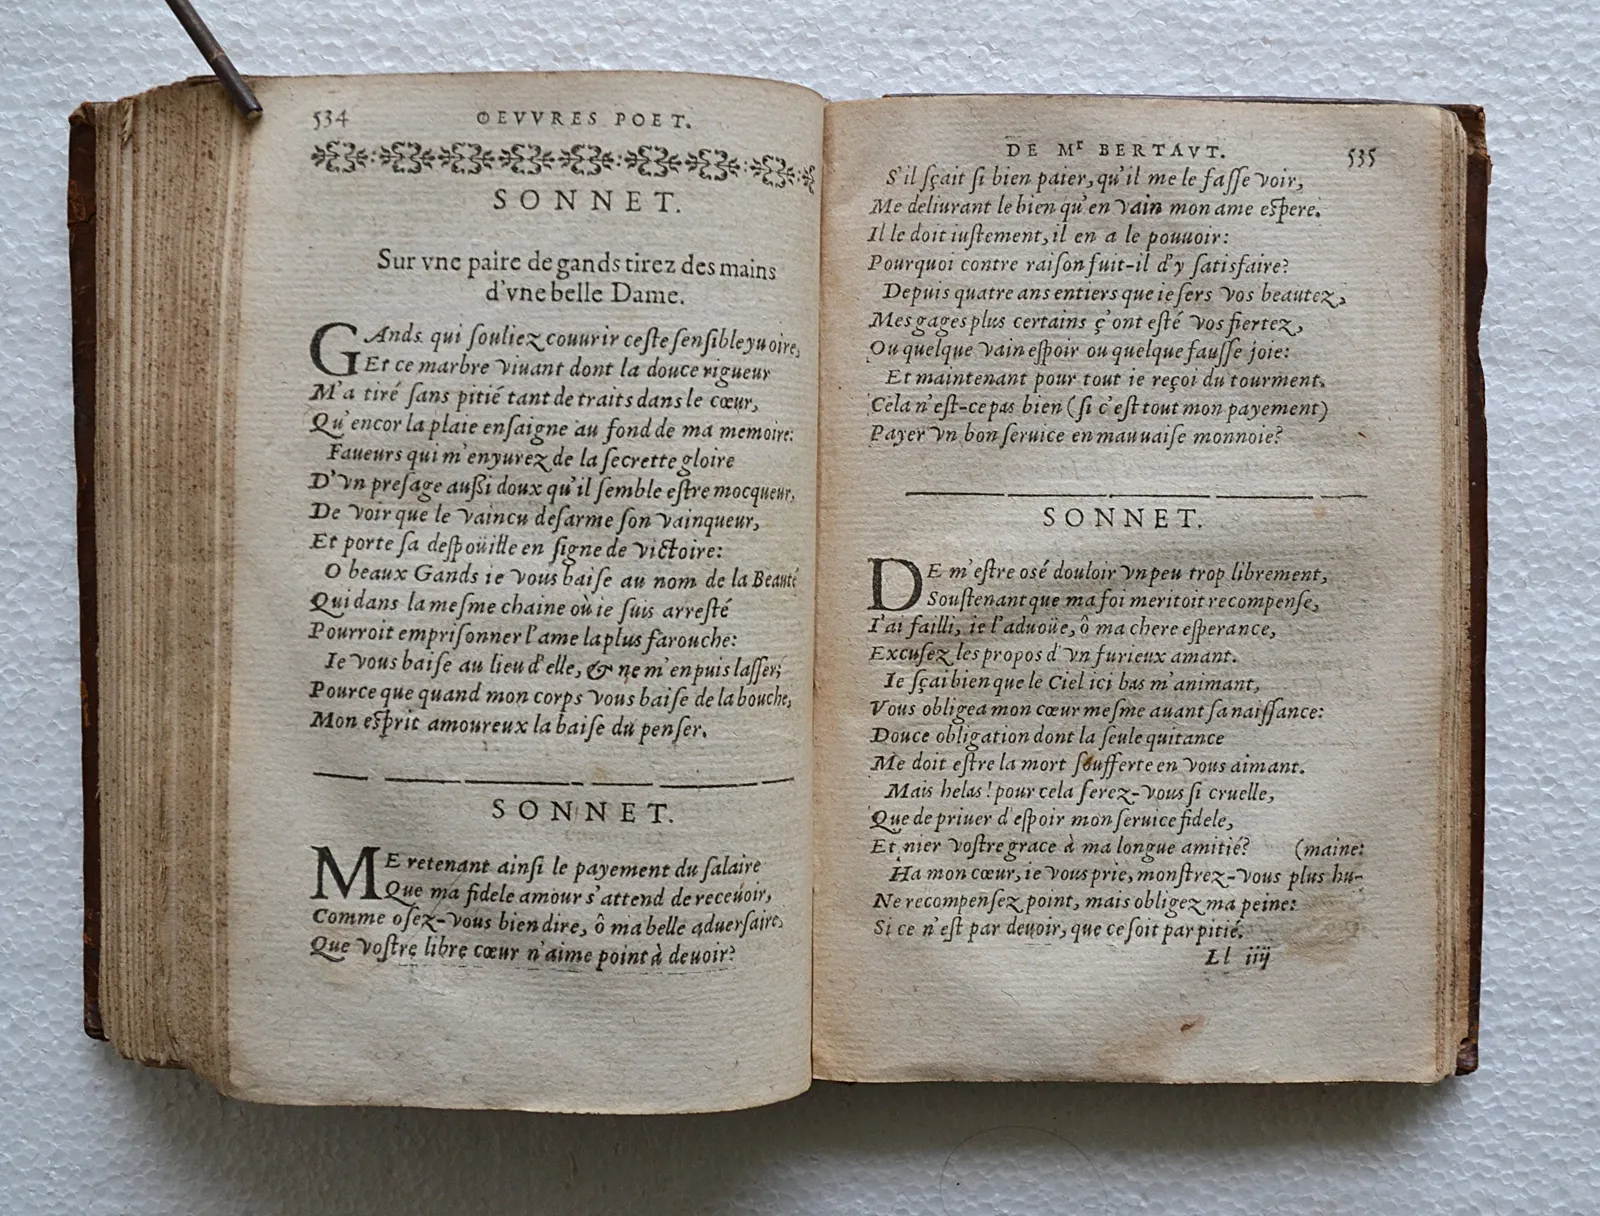 534 OEVVRES POET.
SONNET.
Sur vne paire de gands tirez des mains
d'vne belle Dame.
GAnds qui souliez couurir ceste sensible yuoire,
Et ce marbre viuant dont la douce rigueur
M'a tiré sans pitié tant de traits dans le cœur,
Qu'encor la plaie ensaigne au fond de ma memoire:
Faueurs qui m'enyurez de la secrette gloire
D'vn presage aussi doux qu'il semble estre mocqueur,
De voir que le vaincu desarme son vainqueur,
Et porte sa despoüille en signe de victoire:
O beaux Gands ie vous baise au nom de la Beauté
Qui dans la mesme chaine où ie suis arresté
Pourroit emprisonner l'ame la plus farouche:
Ie vous baise au lieu d'elle, & ne m'en puis lasser;
Pource que quand mon corps vous baise de la bouche,
Mon esprit amoureux la baise du penser.
SONNET.
ME retenant ainsi le payement du salaire
Que ma fidele amour s'attend de receuoir,
Comme osez-vous bien dire, ô ma belle aduersaire,
Que vostre libre cœur n'aime point à deuoir?
DE Mr BERTAVT. 535
S'il sçait si bien paier, qu'il me le fasse voir,
Me deliurant le bien qu'en vain mon ame espere.
Il le doit iustement, il en a le pouuoir:
Pourquoi contre raison fuit-il d'y satisfaire?
Depuis quatre ans entiers que ie sers vos beautez,
Mes gages plus certains ç'ont esté vos fiertez,
Ou quelque vain espoir ou quelque fausse joie:
Et maintenant pour tout ie reçoi du tourment.
Cela n'est-ce pas bien (si c'est tout mon payement)
Payer vn bon seruice en mauuaise monnoie?
SONNET.
DE m'estre osé douloir vn peu trop librement,
Soustenant que ma foi meritoit recompense,
I'ai failli, ie l'aduoüe, ô ma chere esperance,
Excusez les propos d'vn furieux amant.
Ie sçai bien que le Ciel ici bas m'animant,
Vous obligea mon cœur mesme auant sa naissance:
Douce obligation dont la seule quitance
Me doit estre la mort soufferte en vous aimant.
Mais helas! pour cela serez-vous si cruelle,
Que de priuer d'espoir mon seruice fidele,
Et nier vostre grace à ma longue amitié? (maine:
Ha mon cœur, ie vous prie, monstrez-vous plus hu-
Ne recompensez point, mais obligez ma peine:
Si ce n'est par deuoir, que ce soit par pitié.
Ll iiij